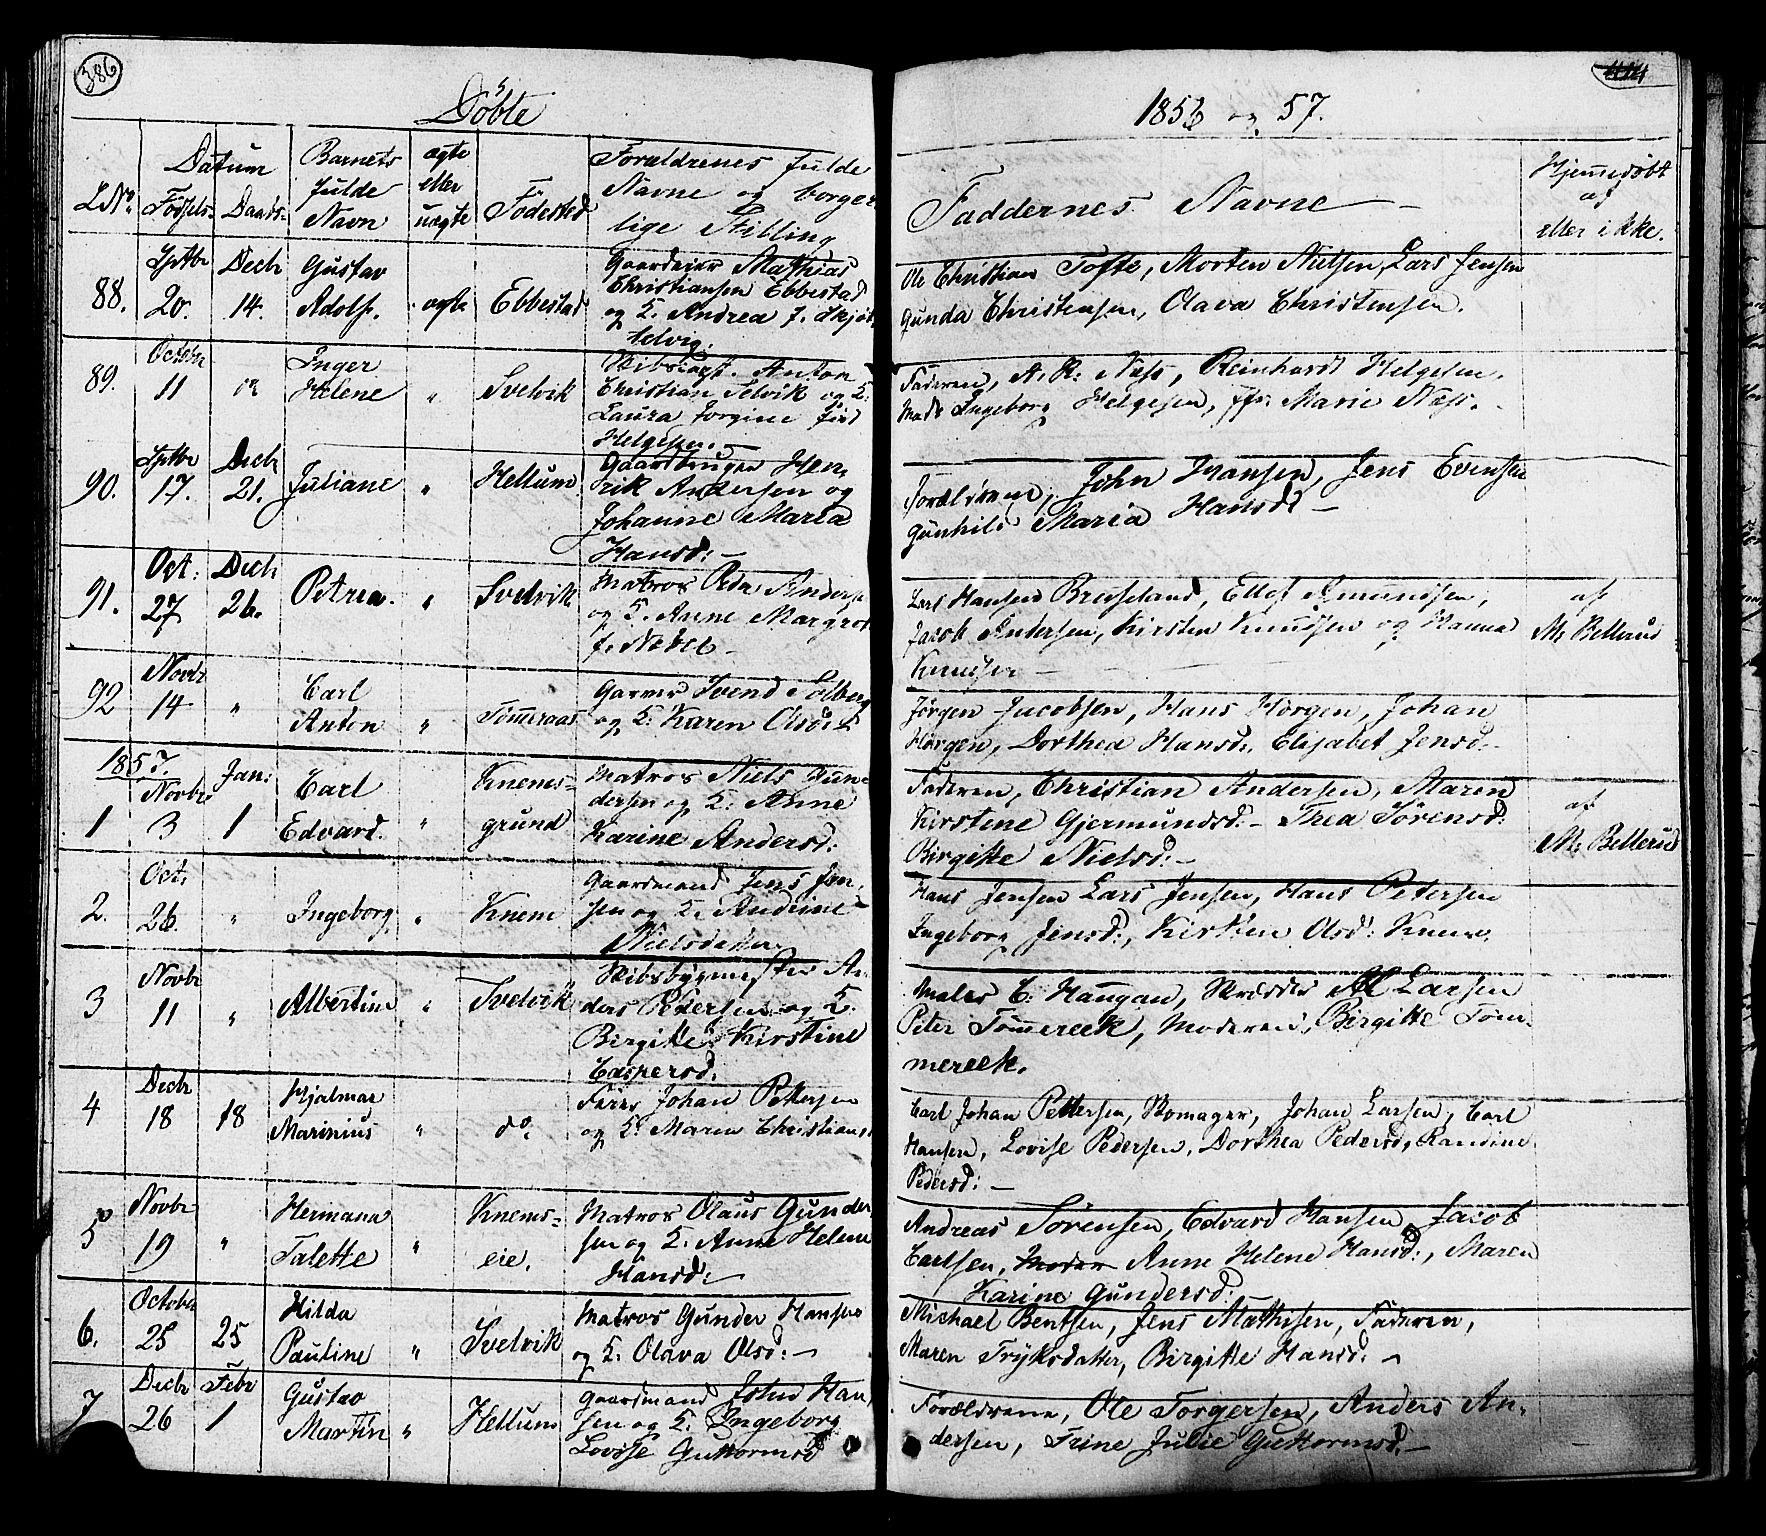 386
Döbte
1856 og 57.
LNo. Datum Födsels- Daabs- Barnets fulde Navn ægte eller uægte Födested Forældrenes fulde Navne og borgerlige Stilling Faddernes Navne Hjemmedöbt af eller ikke.
88. Sptbr 20. Decbr 14. Gustav Adolf. ægte Ebbestad
Gaardeier Mathias
Christiansen Ebbestad
og K. Andrea f.
Ole Christian Tofte, Morten Nielsen, Lars Jensen
Gunda Christensen, Olava Christensen.
89. Octobr 11 do Inger Helene " Svelvik
Skibscapt. Anton
Christian Selvik og K.
Laura Jorgine född
Helgesen.
Faderen, A. R. Næss, Reinhardt Helgesen,
Mad. Ingeborg Helgesen, Marie Næss.
90. Sptbr 17. Decbr 21. Juliane " Hellum
Gaardbruger Hen
rik Andersen og
Johanne Maria
Hansd:
Forældrene, John Hansen, Jens Evensen
Gunhild Maria Hansd
91. Oct: 27 Decbr 26. Petrea. " Svelvik
Matros Peder Anders
og K. Anne Margret
f. Nebel
Carl Hansen Bruseland, Ellef Amundsen,
Jacob Andersen, Kirsten Knudsen og Hanna
Knudsen
af
M. Bellerud
92 Novbr 14 " Carl Anton " Tömeraas
Garver Svend Solberg
og K. Karen Olsd:
Jörgen Jacobsen, Hans Hörgen, Johan
Hörgen, Dorthea Hansd:, Elisabet Jensd:
1857.
1 Novbr 3 Jan: 1 Carl Edvard. " Knems-grund
Matros Niels Gun-
dersen og K. Anne
Karine Andersd:
Faderen, Christian Andersen, Maren
Kirstine Gjermundsd: Thea Sörensd:
Birgitte Nielsd:
af
M. Bellerud
2. Oct. 26. " Ingeborg " Knem
Gaardmand Jens Jen-
sen og K. Andrine
Nielsdatter
Hans Jensen Lars Jensen, Hans Petersen
Ingeborg Jensd:, Kirsten Olsd: Knem.
3 Novbr 11 " Albertine " Svelvik
Skibsbygmester An-
ders Pedersen og K.
Birgitte Kirstine
Caspersd.
Maler C. Haugan, Skrædder Larsen
Peter Tömereek, Moderen, Birgitte Töm-
mereek.
4 Decbr 18 18 Hjalmar Marinius " do:
Johan Pettersen
og K. Maren Christians
Carl Johan Pettersen, Skomager, Johan Larsen, Carl
Hansen, Lovise Pedersen, Dorthea Pedersd, Randine
Pedersd:
5 Novbr 19 " Hermana Talette " Knems-eie.
Matros Olaus Gunder
sen og K. Anne Helene
Hansd:
Andreas Sörensen, Edvard Hansen, Jacob
Carlsen, Moder Anne Helene Hansd:, Maren
Karine Gundersd:
6. October 25 25 Hilda Pauline " Svelvik
Matros Gunder Hansen
og K. Olava Olsd:
Michael Bentsen, Jens Mathisen, Faderen,
Maren Tryksdatter, Birgitte Hansd:
7 Decbr 26 Febr 1 Gustav Martin " Hellum
Gaardmand John Han
sen og K. Ingeborg
Lovise Guttormsd
Forældrene, Ole Torgersen, Anders An-
dersen, Trine Julie Guttormsd.